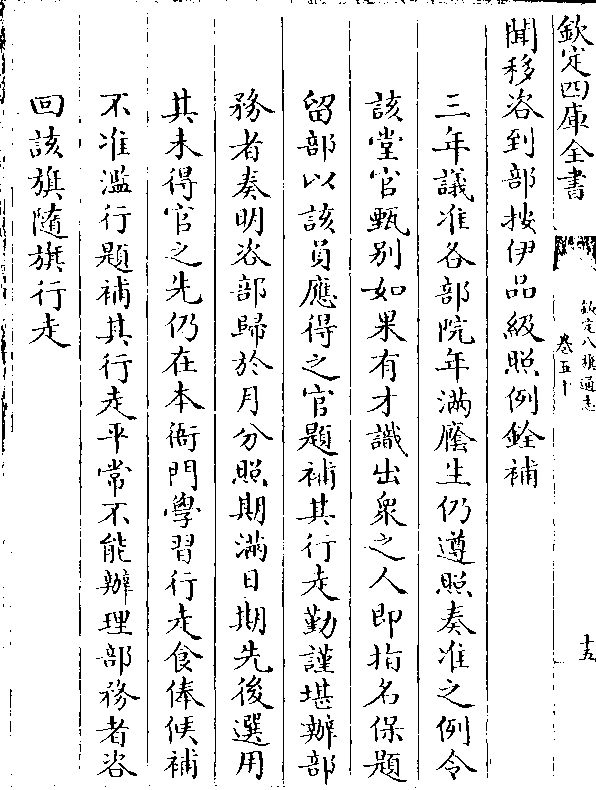 欽定四庫全書
欽定八旗通志
卷五十
十五
聞移咨到部按伊品級照例銓補
三年議准各部院年滿廕生仍遵照奏准之例令
該堂官甄别如果有才識出衆之人即指名保題
留部以該員應得之官題補其行走勤謹堪辦部
務者奏明咨部歸於月分照期滿日期先後選用
其未得官之先仍在本衙門學習行走食俸候補
不准濫行題補其行走平常不能辦理部務者咨
回該旗隨旗行走